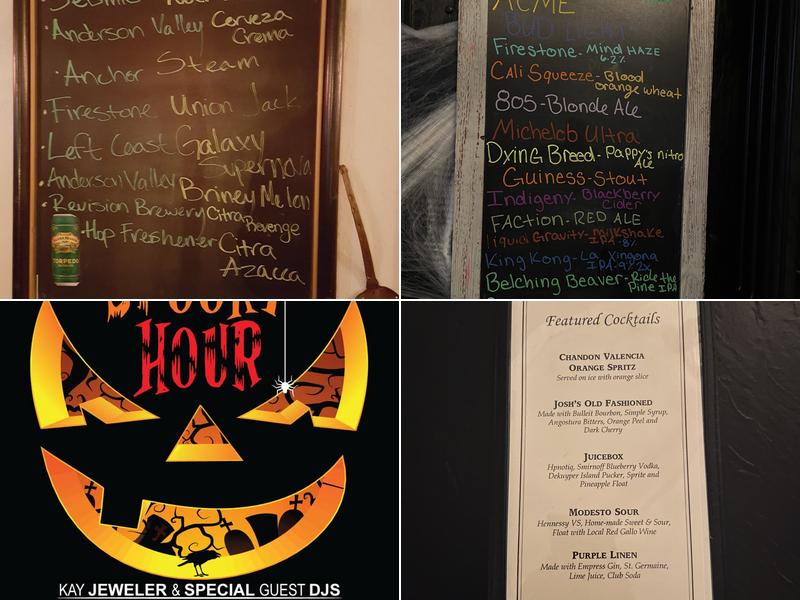 Anderson Valley Cerveza
Crema
Anchor Steam
Firestone Union Jack
Left Coast Galaxy
Supernova
Anderson Valley
Briney Melon
Revision Brewery Citra
Revenge
Hop Freshener Citra
Azacca
TORPEDO
ACME
BUD LIGHT
Firestone - Mind HAZE
6.2%
Cali Squeeze - Blood
orange wheat
805 - Blonde Ale
Michelob Ultra
Dying Breed - Pappy's nitro
Ale
Guiness - Stout
Indigeny - Blackberry
Cider
FACTION - RED ALE
Liquid Gravity - milkshake
IPA - 8%
King Kong - La Xingona
IPA -
Belching Beaver - Ride the
Pine IPA
SPOOKY
HOUR
KAY JEWELER & SPECIAL GUEST DJS
Featured Cocktails
CHANDON VALENCIA
ORANGE SPRITZ
Served on ice with orange slice
JOSH'S OLD FASHIONED
Made with Bulleit Bourbon, Simple Syrup,
Angostura Bitters, Orange Peel and
Dark Cherry
JUICEBOX
Hpnotiq, Smirnoff Blueberry Vodka,
Dekuyper Island Pucker, Sprite and
Pineapple Float
MODESTO SOUR
Hennessy VS, Home-made Sweet & Sour,
Float with Local Red Gallo Wine
PURPLE LINEN
Made with Empress Gin, St. Germaine,
Lime Juice, Club Soda